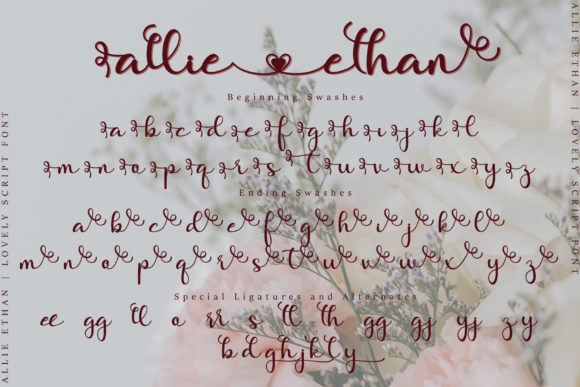 allie ethan
Beginning Swashes
a b c d e f g h i j k l
m n o p q r s t u v w x y z
Ending Swashes
a b c d e f g h i j k l
m n o p q r s t u v w x y z
Special Ligatures and Alternates
ee gg ll o rr s tt th gg gj yj zy
b d g h j k l y
ALLIE ETHAN | LOVELY SCRIPT FONT
ALLIE ETHAN | LOVELY SCRIPT FONT